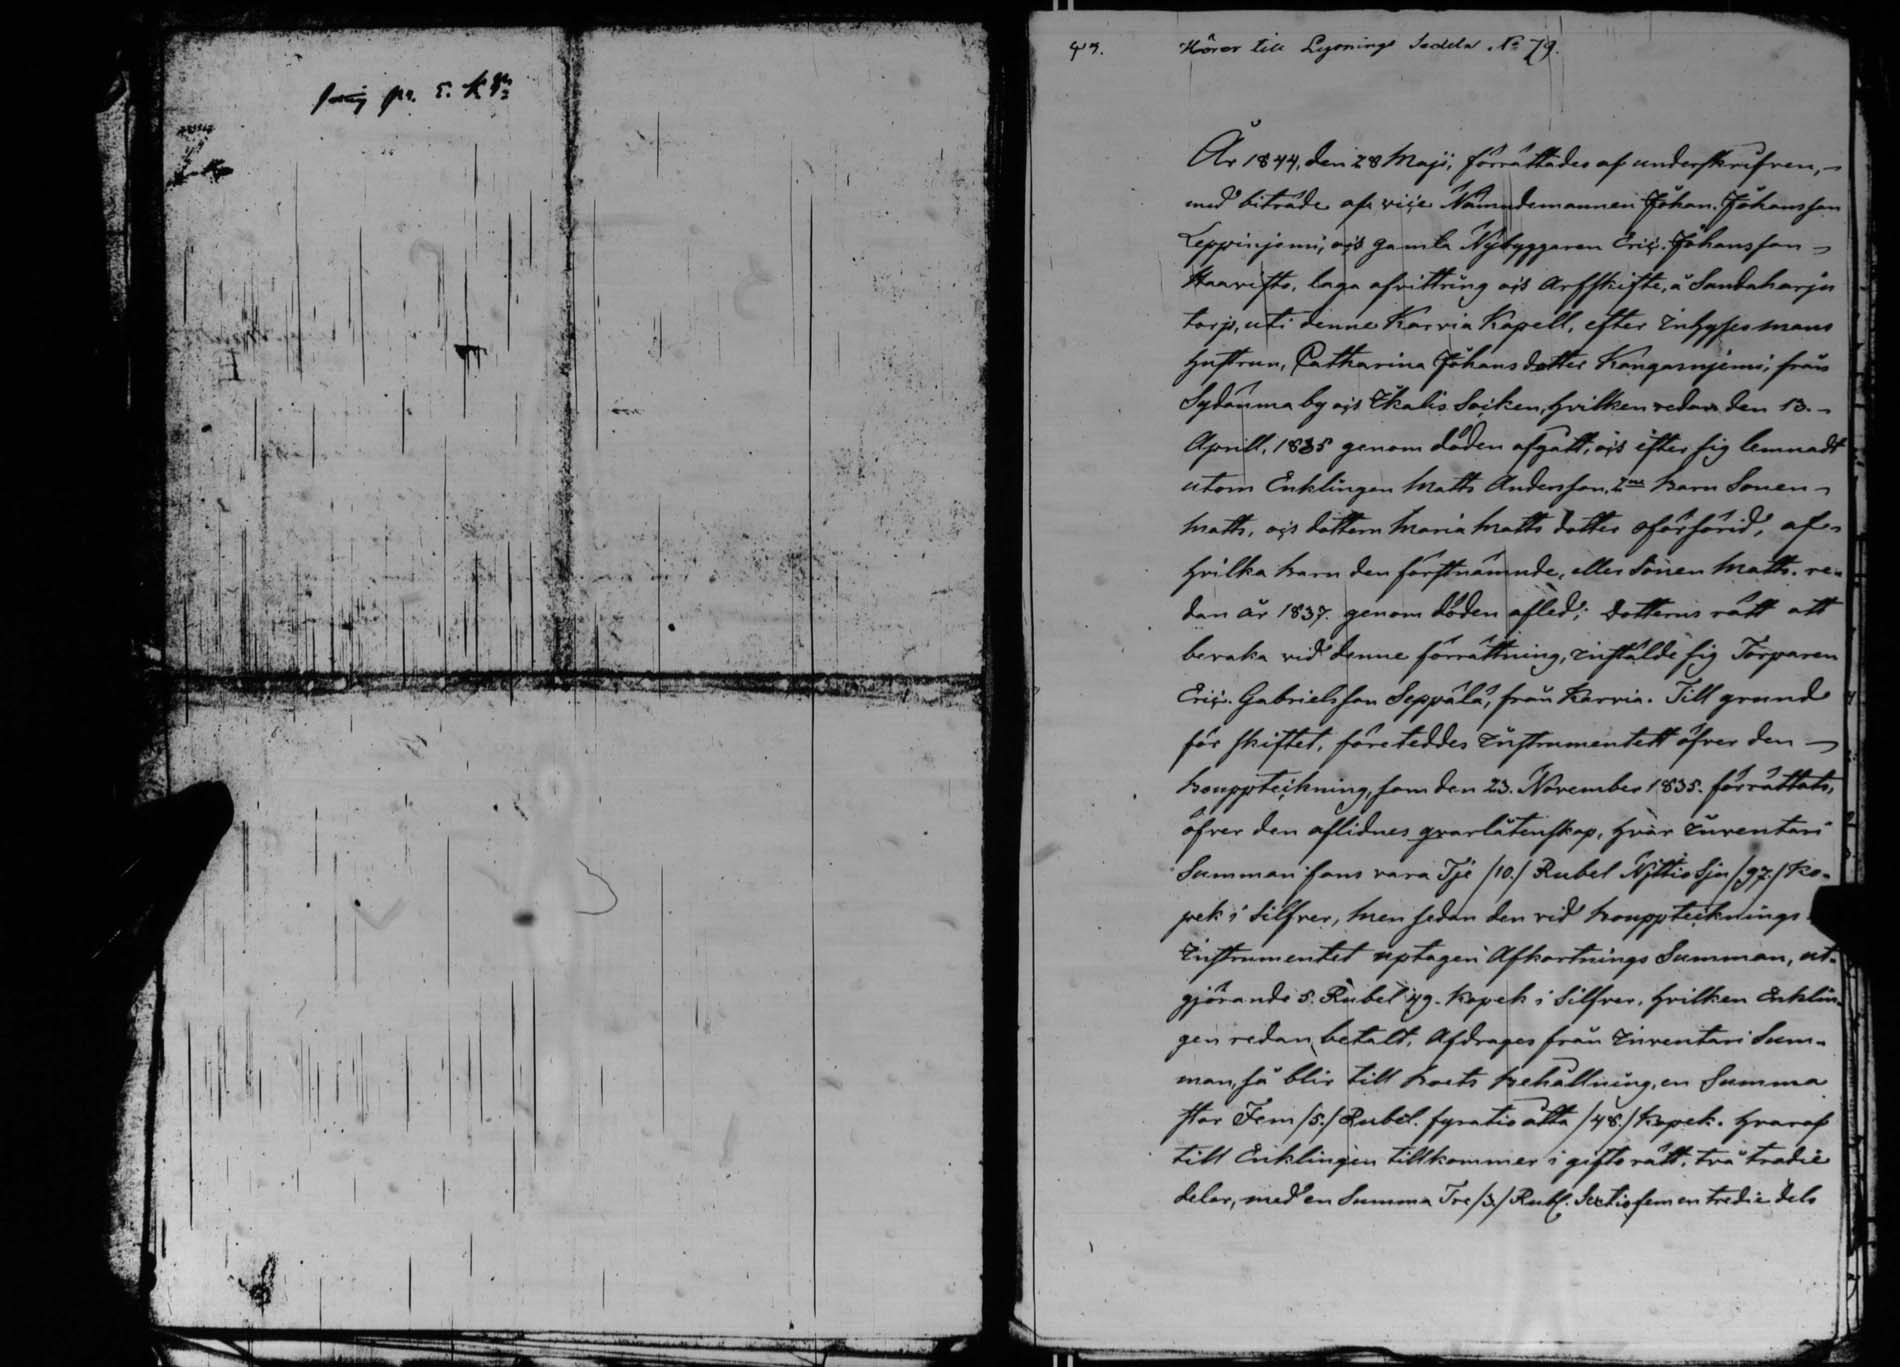 43. Hörer till Lysnings Sedeln No 79.
År 1844, den 28 Maji, förrättades af underskrifven,
med biträde af vice Nämndemannen Johan Johansson
Leppinjemi, och gamla Nybyggaren Eric Johansson
Haavisto, laga afvittring och Arfskifte, å Sandaharju
torp, uti denne Karvia Kapell, efter Inhyses mans
hustrun, Catharina Johansdotter Kangasnjemi, från
Sydänma by och Ikalis Socken, hvilken redan den 13.
Aprill, 1835 genom döden afgått, och efter sig lemnadt
utom Enklingen Matts Andersson, 2ne barn Sonen
Matts, och dottern Maria Matts dotter oförsörjd, af
hvilka barn den förstnämnde, eller Sonen Matts re-
dan år 1837. genom döden afled; dotterns rätt att
bevaka vid denne förrättning, instälde sig Torparen
Eric Gabrielsson Seppälä, från Karvia. Till grund
för skiftet, företeddes Instrumentett öfver den
bouppteckning, som den 23. November 1835. förrättats,
öfver den aflidnes qvarlåtenskap, hvar Inventari
Summan fans vara Tje /10./ Rubel Nittio Sju /97./ Ko-
pek i Silfver, men sedan den vid bouppteknings
Instrumentet uptagen Afkortnings Summan, ut-
gjörande 5. Rubel 49. kopek i Silfver, hvilken Enklin-
gen redan betalt, Afdrages från Inventari Sum-
man, så blir till boets behållning, en Summa
stor Fem /5./ Rubel. fyratio åtta /48./ kopek. hvaraf
till Enklingen tillkommer i giftorätt, två tredie
delar, med en Summa Tre /3./ Rubl. Sextiofem en tredie dels